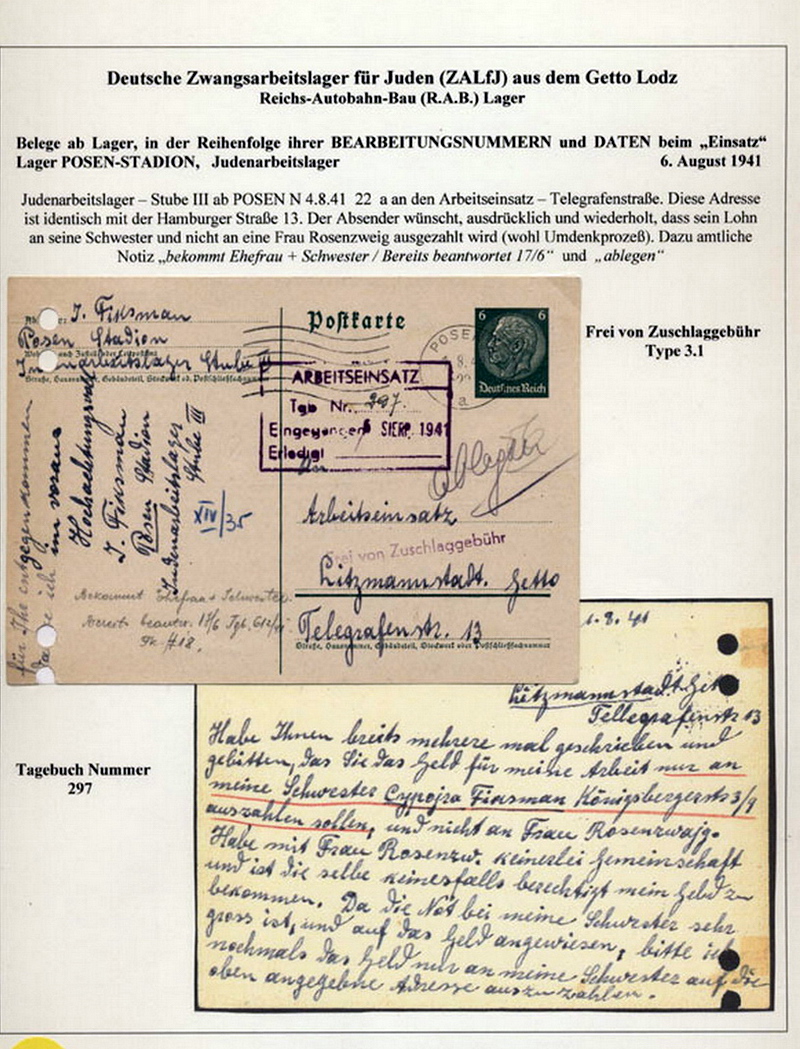 Deutsche Zwangsarbeitslager für Juden (ZALfJ) aus dem Getto Lodz
Reichs-Autobahn-Bau (R.A.B.) Lager
Belege ab Lager, in der Reihenfolge ihrer BEARBEITUNGSNUMMERN und DATEN beim „Einsatz“
Lager POSEN-STADION, Judenarbeitslager 6. August 1941
Judenarbeitslager – Stube III ab POSEN N 4.8.41 22 a an den Arbeitseinsatz – Telegrafenstraße. Diese Adresse
ist identisch mit der Hamburger Straße 13. Der Absender wünscht, ausdrücklich und wiederholt, dass sein Lohn
an seine Schwester und nicht an eine Frau Rosenzweig ausgezahlt wird (wohl Umdenkprozeß). Dazu amtliche
Notiz „bekommt Ehefrau + Schwester / Bereits beantwortet 17/6“ und „ablegen“
J. Fiksman
Posen Stadion
Judenarbeitslager Stube III
Straße, Hausnummer, Gebäudeteil, Stockwerk od. Postschließfachnummer
für Ihr entgegenkommen
danke ich im voraus
Hochachtungsvoll
J. Fiksman
Posen Stadion
Judenarbeitslager
Stube III
XIV/35
Bekommt Ehefrau + Schwester.
Bereits beantw. 17/6 Tgb.
Postkarte
POSEN
a
6 6
Deutsches Reich
ARBEITSEINSATZ
Tgb Nr. 297.
Eingegangen 6 SIERP. 1941
Erledigt
An
ablegen
Arbeitseinsatz
Frei von Zuschlaggebühr
Litzmannstadt. Getto
Telegrafenstr. 13
Straße, Hausnummer, Gebäudeteil, Stockwerk oder Postschließfachnummer
Frei von Zuschlaggebühr
Type 3.1
Tagebuch Nummer
297
.8.41
Litzmannstadt. Gett
Tellegrafenstr 13
Habe Ihnen breits mehrere mal geschrieben und
gebitten, das Sie das Geld für meine Arbeit nur an
meine Schwester Cypojra Fiksman Königsbergerstr 3/9
auszahlen sollen, und nicht an Frau Rosenzwajg.
Habe mit Frau Rosenzw. keinerlei Gemeinschaft
und ist die selbe keinesfalls berechtigt mein Geld zu
bekommen. Da die Not bei meine Schwester sehr
gross ist, und auf das Geld angewiesen, bitte ich
nochmals das Geld nur an meine Schwester auf die
oben angegebne Adresse auszuzahlen.